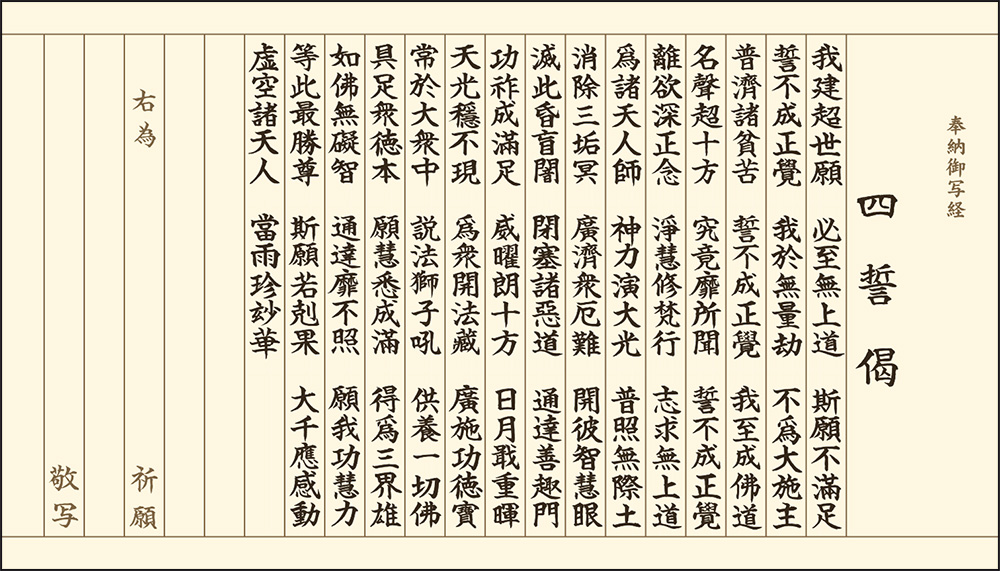 奉納御写経
四誓偈
我建超世願 必至無上道 斯願不滿足
誓不成正覺 我於無量劫 不爲大施主
普濟諸貧苦 誓不成正覺 我至成佛道
名聲超十方 究竟靡所聞 誓不成正覺
離欲深正念 淨慧修梵行 志求無上道
爲諸天人師 神力演大光 普照無際土
消除三垢冥 廣濟衆厄難 開彼智慧眼
滅此昏盲闇 閉塞諸惡道 通達善趣門
功祚成滿足 威曜朗十方 日月戢重暉
天光穩不現 爲衆開法藏 廣施功徳寶
常於大衆中 説法獅子吼 供養一切佛
具足衆徳本 願慧悉成滿 得爲三界雄
如佛無礙智 通達靡不照 願我功慧力
等此最勝尊 斯願若剋果 大千應感動
虚空諸天人 當雨珍妙華
右為 祈願
敬写